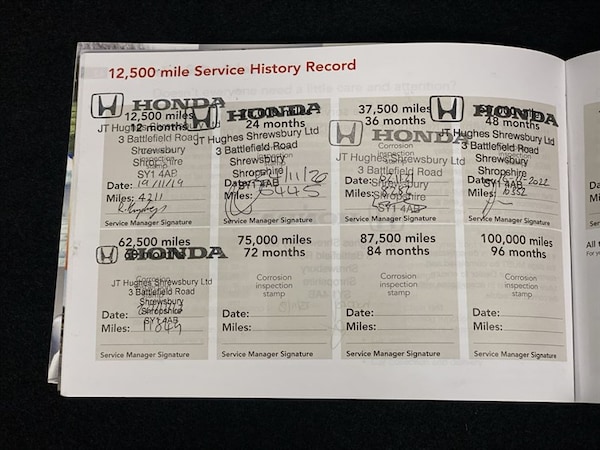 12,500 mile Service History Record
12,500 miles
12 months
HONDA
JT Hughes Shrewsbury Ltd
3 Battlefield Road
Shrewsbury
Shropshire
SY1 4AB
Date: 19/11/19
Miles: 4211
Service Manager Signature
HONDA
24 months
JT Hughes Shrewsbury Ltd
3 Battlefield Road
Shrewsbury
Shropshire
SY1 4AB
Date: /11/20
Miles: 6445
Service Manager Signature
37,500 miles
36 months
HONDA
JT Hughes Shrewsbury Ltd
3 Battlefield Road
Corrosion
inspection
Shrewsbury
Shropshire
SY1 4AB
Date:
Miles:
Service Manager Signature
HONDA
48 months
JT Hughes Shrewsbury Ltd
3 Battlefield Road
Shrewsbury
Shropshire
SY1 4AB
Date: 2022
Miles: 10352
Service Manager Signature
62,500 miles
HONDA
Corrosion
JT Hughes Shrewsbury Ltd
3 Battlefield Road
Shrewsbury
Shropshire
SY1 4AB
Date:
Miles: 11849
Service Manager Signature
75,000 miles
72 months
Corrosion
inspection
stamp
Date:
Miles:
Service Manager Signature
87,500 miles
84 months
Corrosion
inspection
stamp
Date:
Miles:
Service Manager Signature
100,000 miles
96 months
Corrosion
inspection
stamp
Date:
Miles:
Service Manager Signature